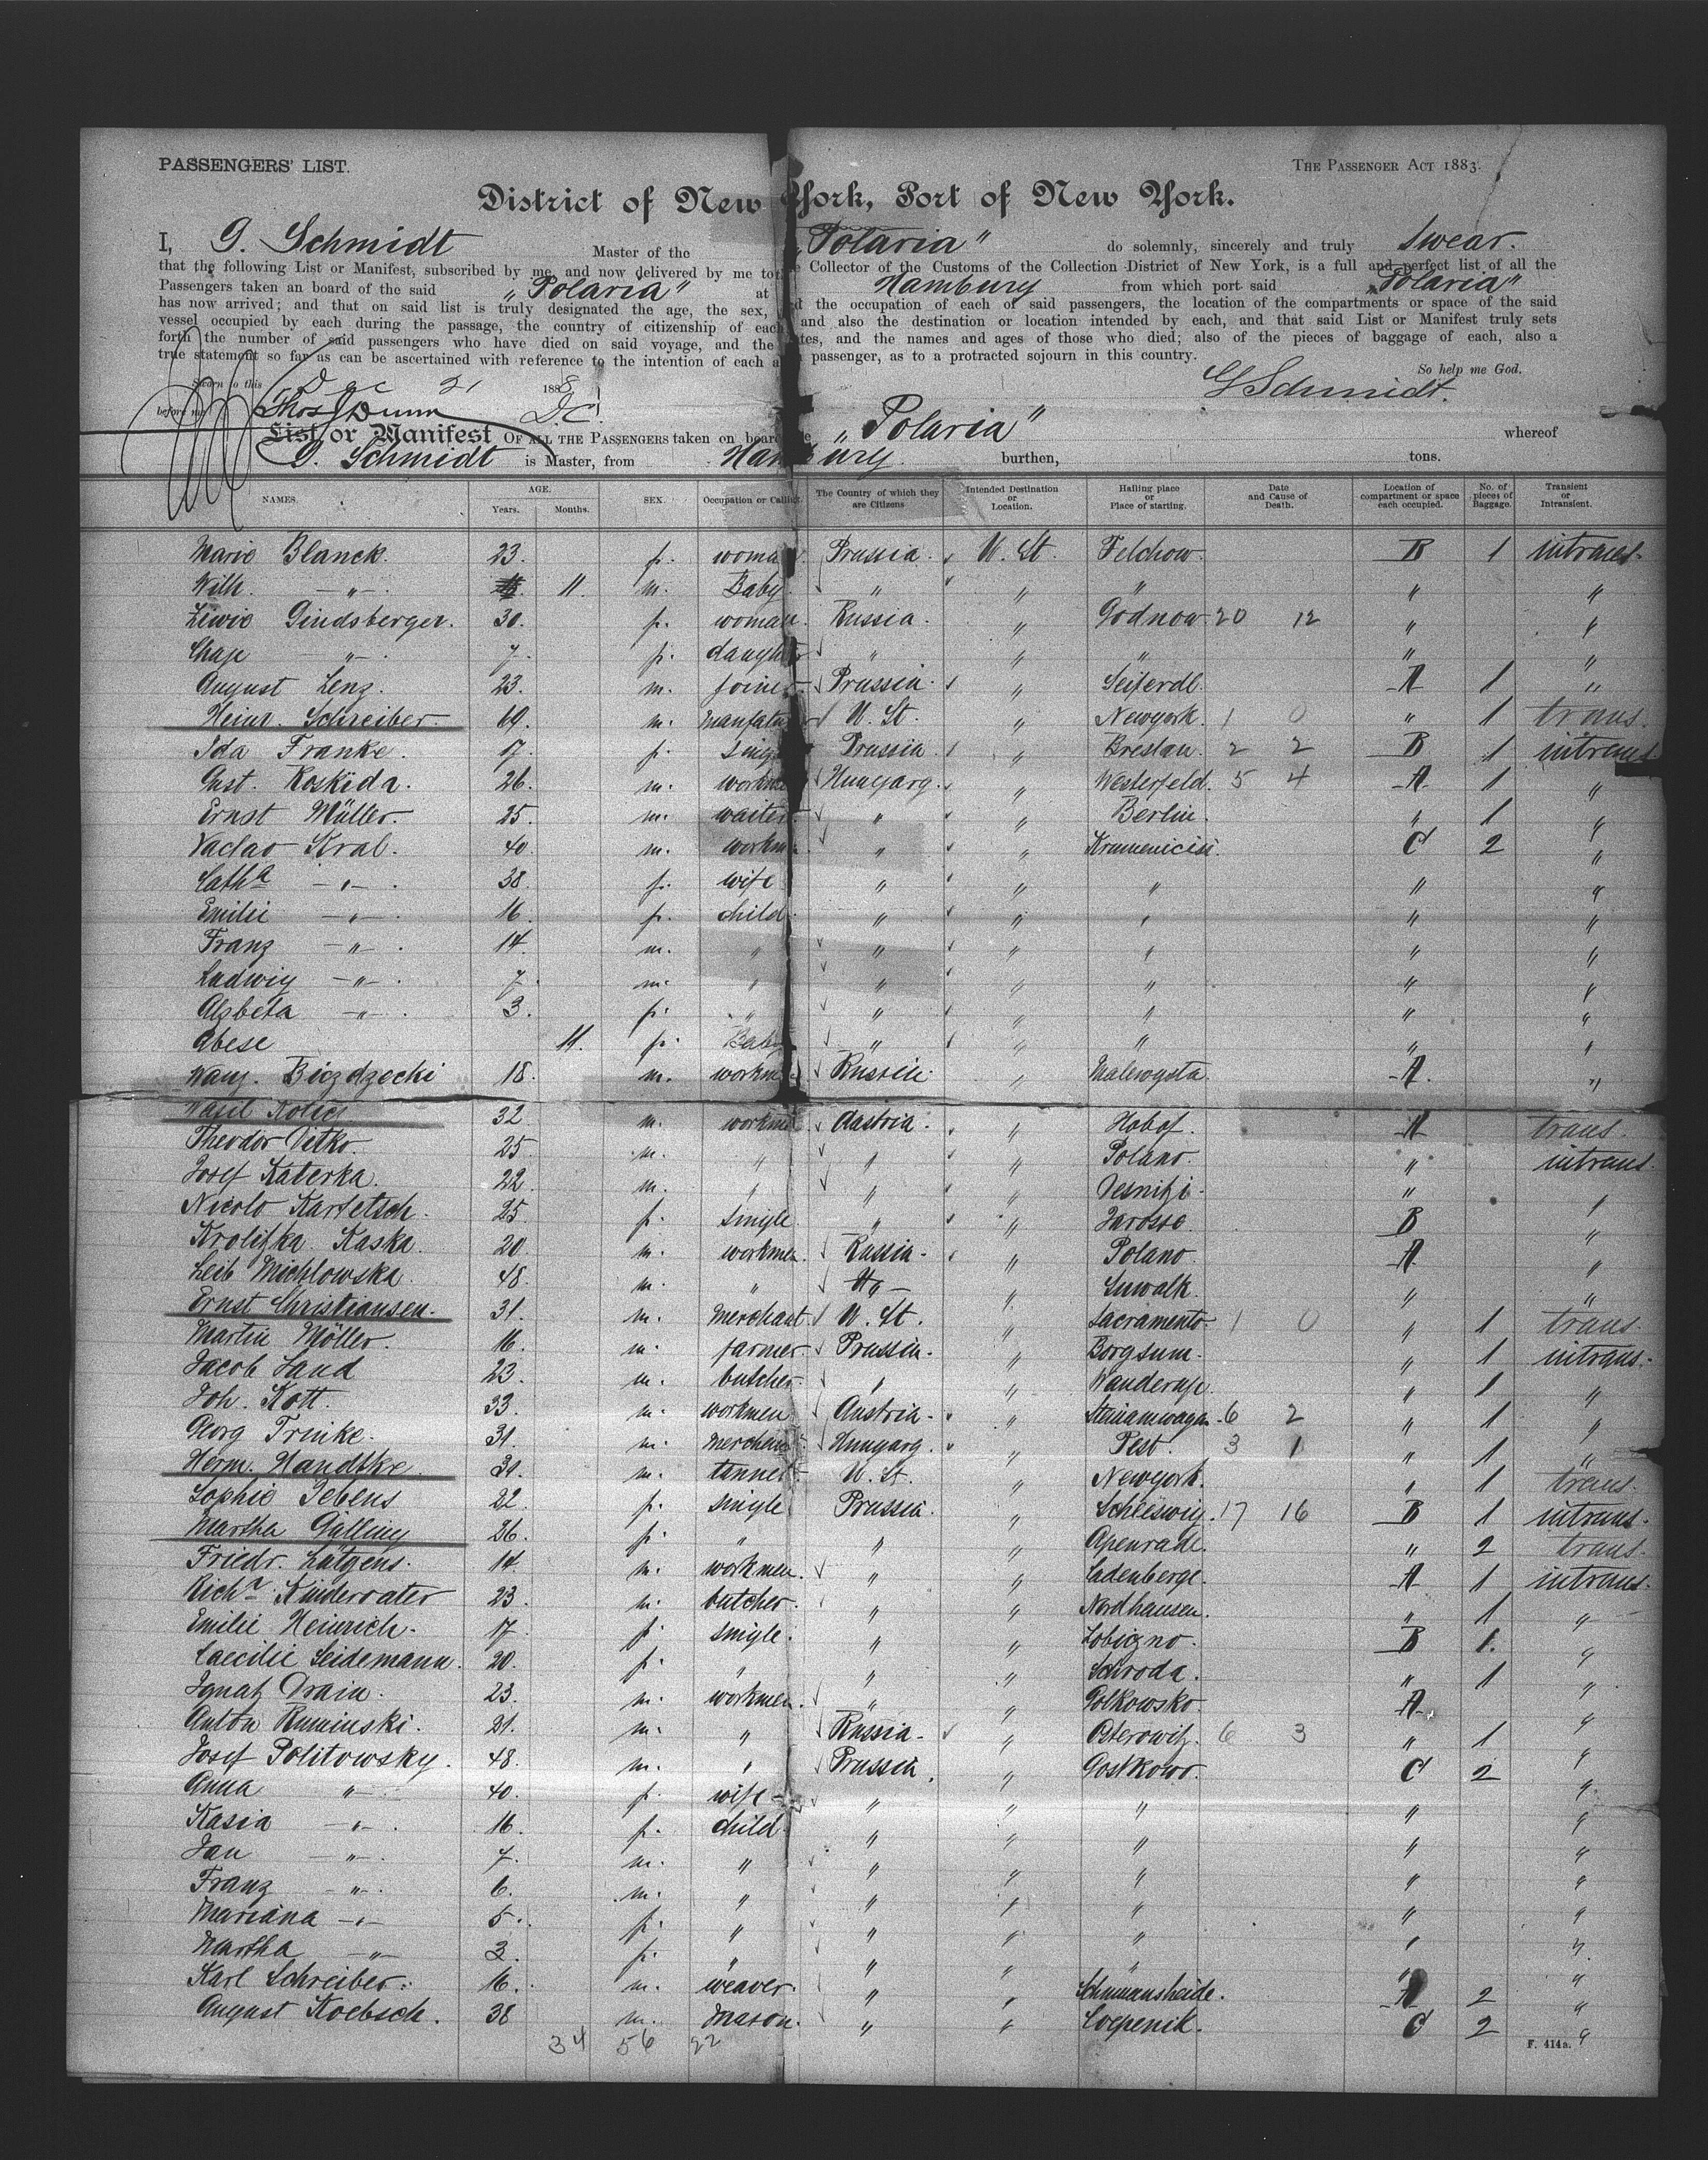 PASSENGERS' LIST.
THE PASSENGER ACT 1883.
District of New York, Port of New York.
I, G. Schmidt Master of the „Polaria" do solemnly, sincerely and truly swear.
that the following List or Manifest, subscribed by me, and now delivered by me to the Collector of the Customs of the Collection District of New York, is a full and perfect list of all the
Passengers taken an board of the said „Polaria" at Hamburg from which port said „Polaria"
has now arrived; and that on said list is truly designated the age, the sex, and the occupation of each of said passengers, the location of the compartments or space of the said
vessel occupied by each during the passage, the country of citizenship of each and also the destination or location intended by each, and that said List or Manifest truly sets
forth the number of said passengers who have died on said voyage, and the dates, and the names and ages of those who died; also of the pieces of baggage of each, also a
true statement so far as can be ascertained with reference to the intention of each a passenger, as to a protracted sojourn in this country.
So help me God.
Sworn to this Dec 21 1888
G Schmidt.
before me Thos J Dunn D.C.
List or Manifest OF ALL THE PASSENGERS taken on board the „Polaria" whereof
G. Schmidt is Master, from Hamburg burthen, tons.
NAMES. AGE. Years. Months. SEX. Occupation or Calling. The Country of which they are Citizens Intended Destination or Location. Hailing place or Place of starting. Date and Cause of Death. Location of compartment or space each occupied. No. of pieces of Baggage. Transient or Intransient.
Marie Blanck. 23. f. woman. Prussia. U. St. Felchow. B 1 intrans.
Wilh. —"— 11. m. Baby. " " " " "
Liwie Gindsberger. 30. f. woman. Russia. " Godnow 20 12 " "
Chaje —"— 7. f. daughter " " " " "
August Lenz. 23. m. joiner. Prussia. " Seiferdl. A 1 "
Heinr. Schreiber. 69. m. U. St. " Newyork. 1 0 " 1 trans.
Ida Franke. 17. f. single Prussia. " Breslau. 2 2 B 1 intrans.
Gust. Koskida. 26. m. workmen Hungarg. " Westerfeld. 5 4 A 1 "
Ernst Müller. 25. m. waiter. " " Berlin. " 1 "
Vaclav Kral. 40. m. workmen " " C 2 "
Cath.a —"— 38. f. wife " " " " "
Emilie —"— 16. f. child. " " " " "
Franz —"— 14. m. " " " " " "
Ludwig —"— 7. m. " " " " " "
Alzbeta —"— 3. f. " " " " " "
Abese 11. f. Baby " " " " "
18. m. workmen Russia. " Malewysta. A. "
Wasil 32 m. workmen Austria. " Hobof. A trans.
Theodor Vitko. 25. m. " " " Polano. " intrans.
Josef Katerka. 22. m. " " " " "
Nicolo Kartetsch. 25. f. single. " " Jarosse. B "
Kaska. 20. m. workmen. Russia. " Polano. A "
Leib Michlowska. 48. m. " " " Suwalk. " "
Ernst Christiansen. 31. m. merchant. U. St. " Sacramento. 1 0 " 1 trans.
Martin Möller. 16. m. farmer. Prussia. " Borgsum. " 1 intrans.
Jacob Jand 23. m. butcher. " " Wanderup. " 1 "
Joh. Kott. 33. m. workmen Austria. " 6 2 " 1 "
Georg Frinke. 31. m. Hungarg. " Pest. 3 1 " 1 "
Herm. Handtke. 31. m. tanner U. St. " Newyork. " 1 trans.
Sophie Jebens 22. f. single. Prussia. " Schleswig. 17 16 B 1 intrans.
Martha 26. f. " " " Apenrade. " 2 trans.
Friedr. Lütgens. 14. m. workmen. " " Ladenberge. A 1 intrans.
Rich.r Kindervater 23. m. butcher. " " Nordhausen. " 1 "
Emilie Heinrich. 17. f. single. " " Lobiczno. B 1. "
Caecilie Seidemann. 20. f. " " " Schroda. " 1 "
Ignatz Drain. 23. m. workmen. " " Golkowsko. A "
Anton Ruminski. 21. m. " Russia. " Osterowitz. 6 3 " 1 "
Josef Politowsky. 48. m. " Prussia. " Gostkowo. C 2 "
Anna " 40. f. wife " " " " "
Kasia —"— 16. f. child " " " " "
Jan —"— 7. m. " " " " " "
Franz —"— 6. m. " " " " " "
Mariana —"— 5. f. " " " " " "
Martha —"— 3. f. " " " " " "
Karl Schreiber. 16. m. weaver. " " A 2 "
August Koebsch. 38 m. mason. " " Coepenik. C 2 "
34 56 22
F. 414a.